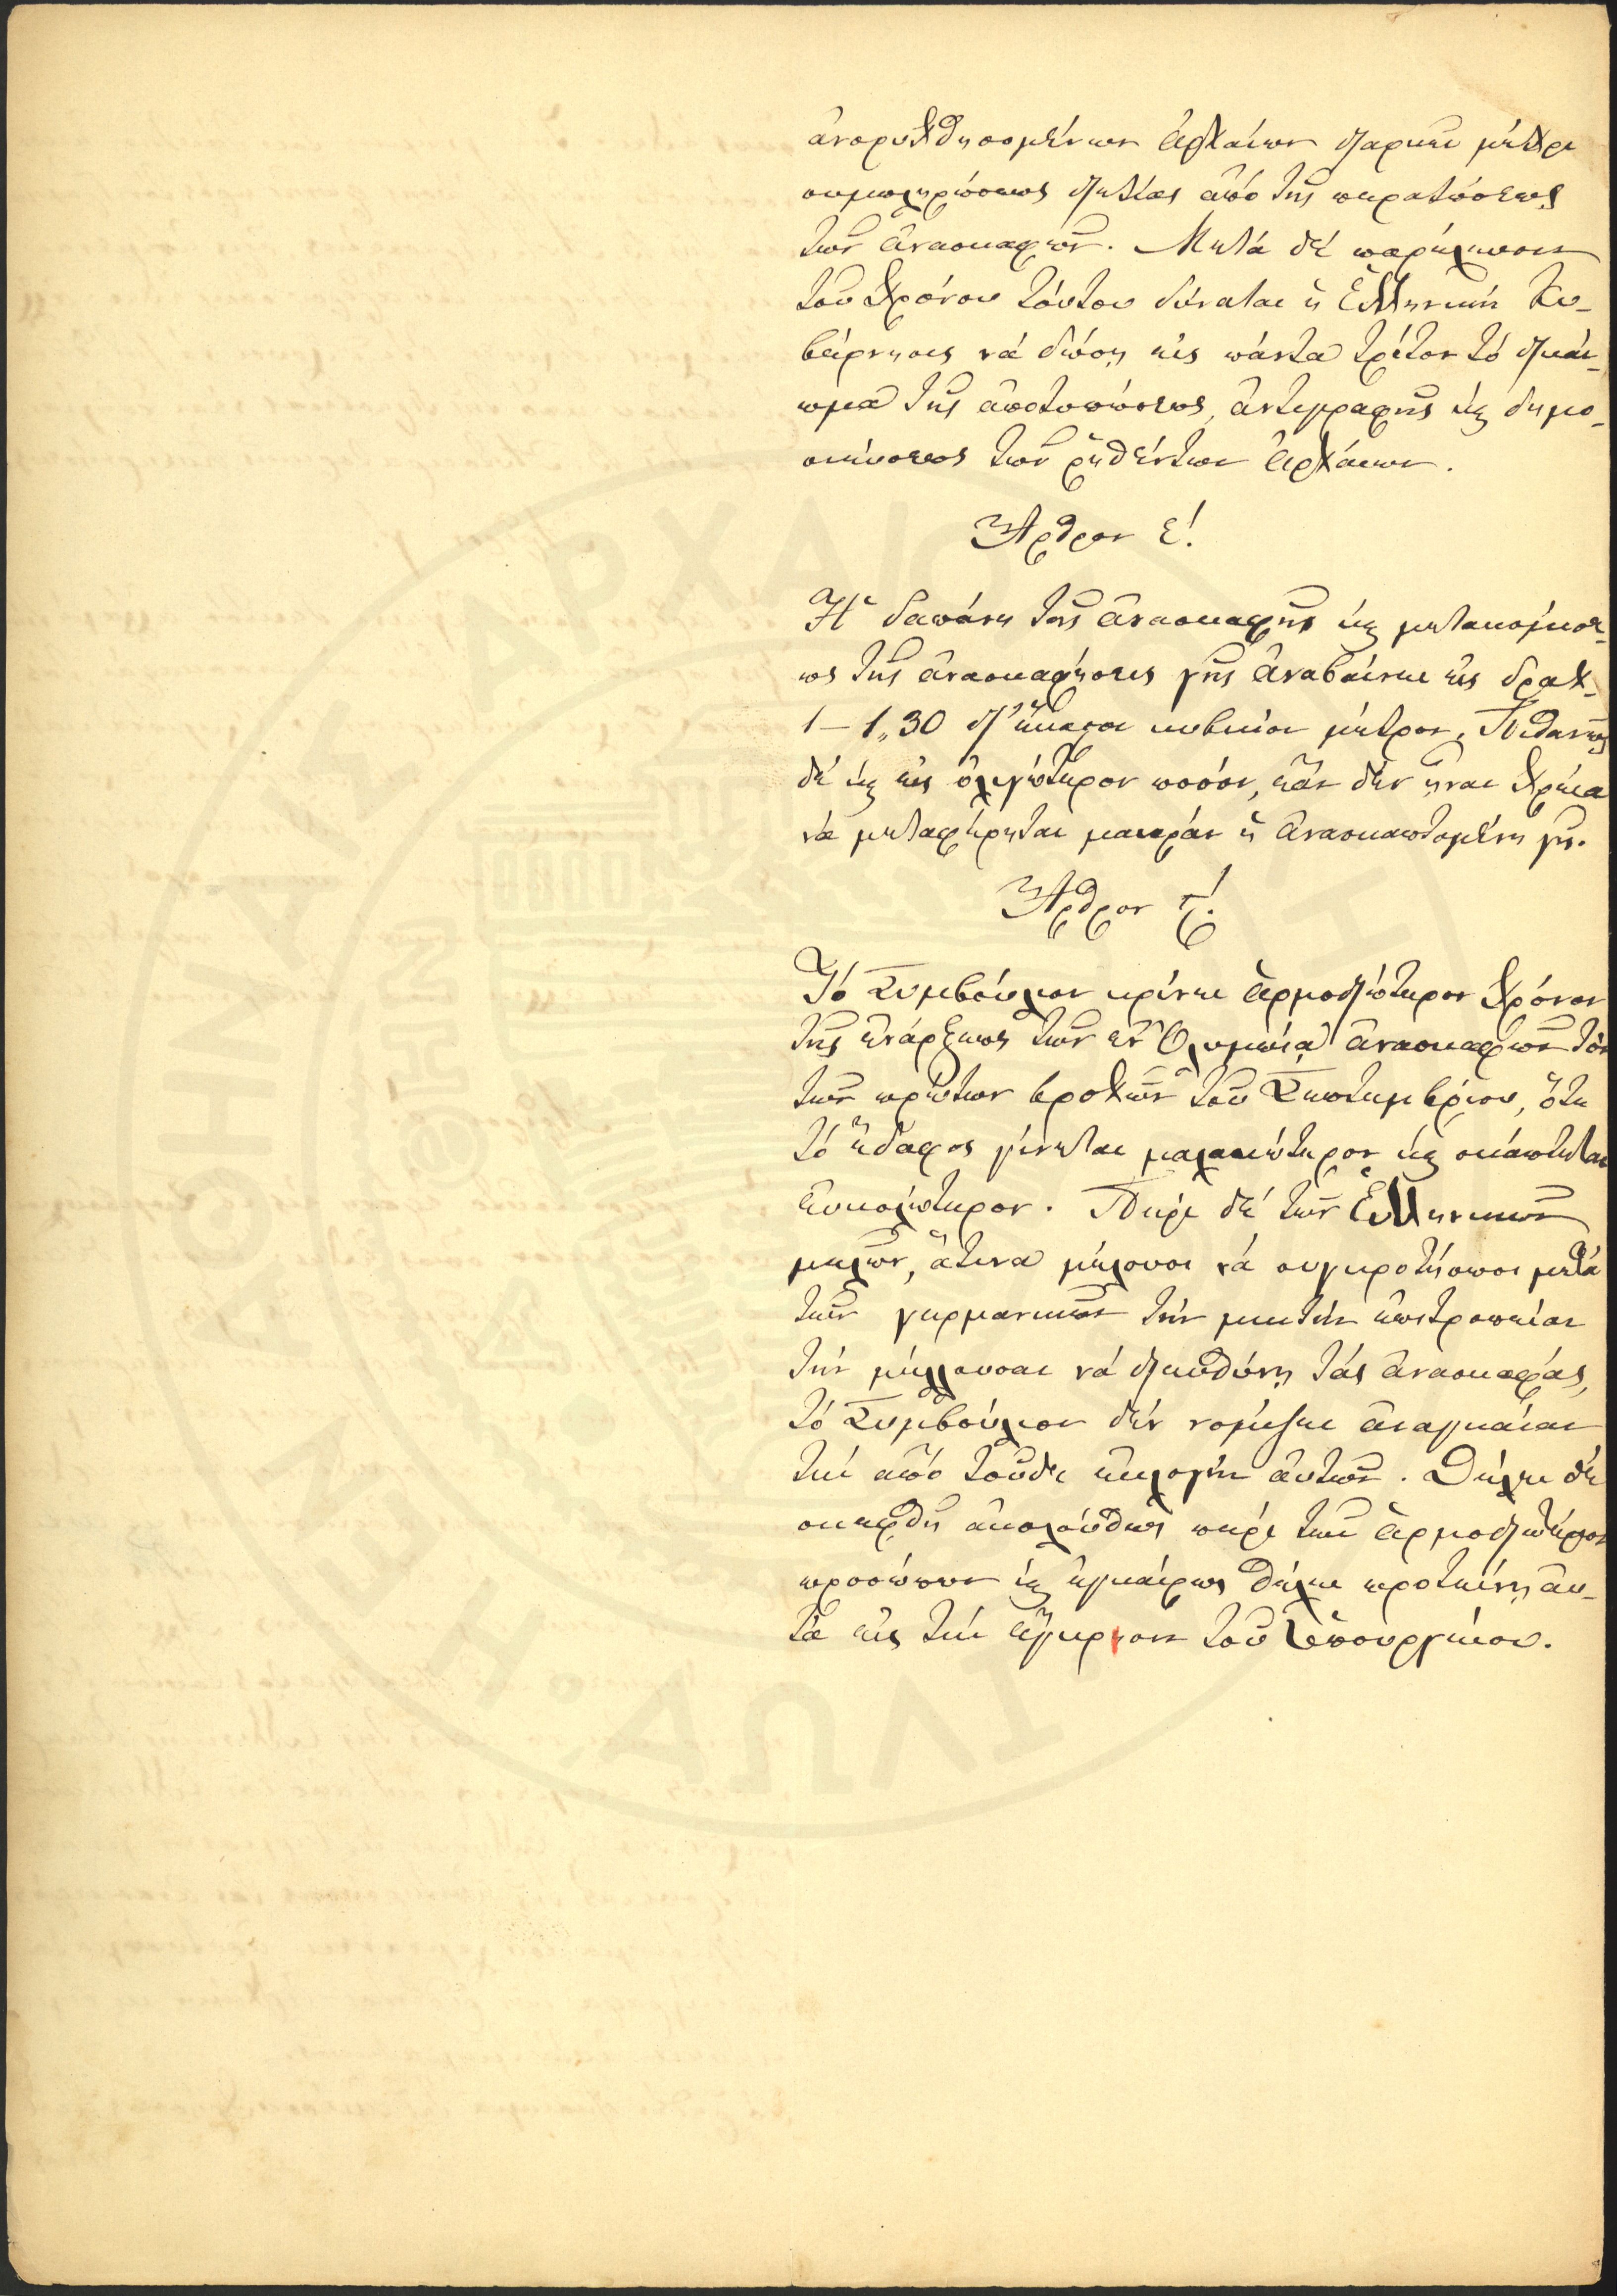 ἀνορυχθησομένων ἀρχαίων διαρκεῖ μέχρι
συμπληρώσεως διετίας ἀπό τῆς περατώσεως
τῶν ἀνασκαφῶν. Μετά δέ παρέλευσιν
τοῦ χρόνου τούτου δύναται ἡ Ἑλληνική Κυ-
βέρνησις νά δώσῃ εἰς πάντα τρίτον τό δικαί-
ωμα τῆς ἀποτυπώσεως, ἀντιγραφῆς καὶ δημο-
σιεύσεως τῶν ῥηθέντων ἀρχαίων.
Ἄρθρον Ε!
Ἡ δαπάνη τῆς ἀνασκαφῆς καὶ μετακομίσε-
ως τῆς ἀνασκαφείσης γῆς ἀναβαίνει εἰς δραχ.
1 – 1,,30 δι' ἕκαστον κυβικόν μέτρον. Πιθανῶς
δέ καὶ εἰς ὀλιγώτερον ποσόν, ἐάν δέν ἦναι χρεία
νά μεταφέρηται μακράν ἡ ἀνασκαπτομένη γῆ.
Ἄρθρον Ϛ!
Τό Συμβούλιον κρίνει ἁρμοδιώτερον χρόνον
τῆς ἐνάρξεως τῶν ἐν Ὀλυμπίᾳ ἀνασκαφῶν τόν
τῶν πρώτων βροχῶν τοῦ Σεπτεμβρίου, ὅτε
τό ἔδαφος γίνεται μαλακώτερον καὶ σκάπτεται
εὐκολώτερον. Περί δέ τῶν Ἑλληνικῶν
μελῶν, ἅτινα μέλουσι νά συγκροτήσωσι μετά
τῶν γερμανικῶν τήν μικτήν ἐπιτροπείαν
τήν μέλλουσαν νά διευθύνῃ τάς ἀνασκαφάς,
τό Συμβούλιον δέν νομίζει ἀναγκαίαν
τήν ἀπό τοῦδε ἐκλογήν αὐτῶν. Θέλει δέ
σκεφθῆ ἀκολούθως περί τῶν ἁρμοδιωτέρων
προσώπων καὶ ἐγκαίρως θέλει προτείνῃ αὐ-
τά εἰς τήν ἔγκρισιν τοῦ Ὑπουργείου.
ΑΡΧΑΙΟ